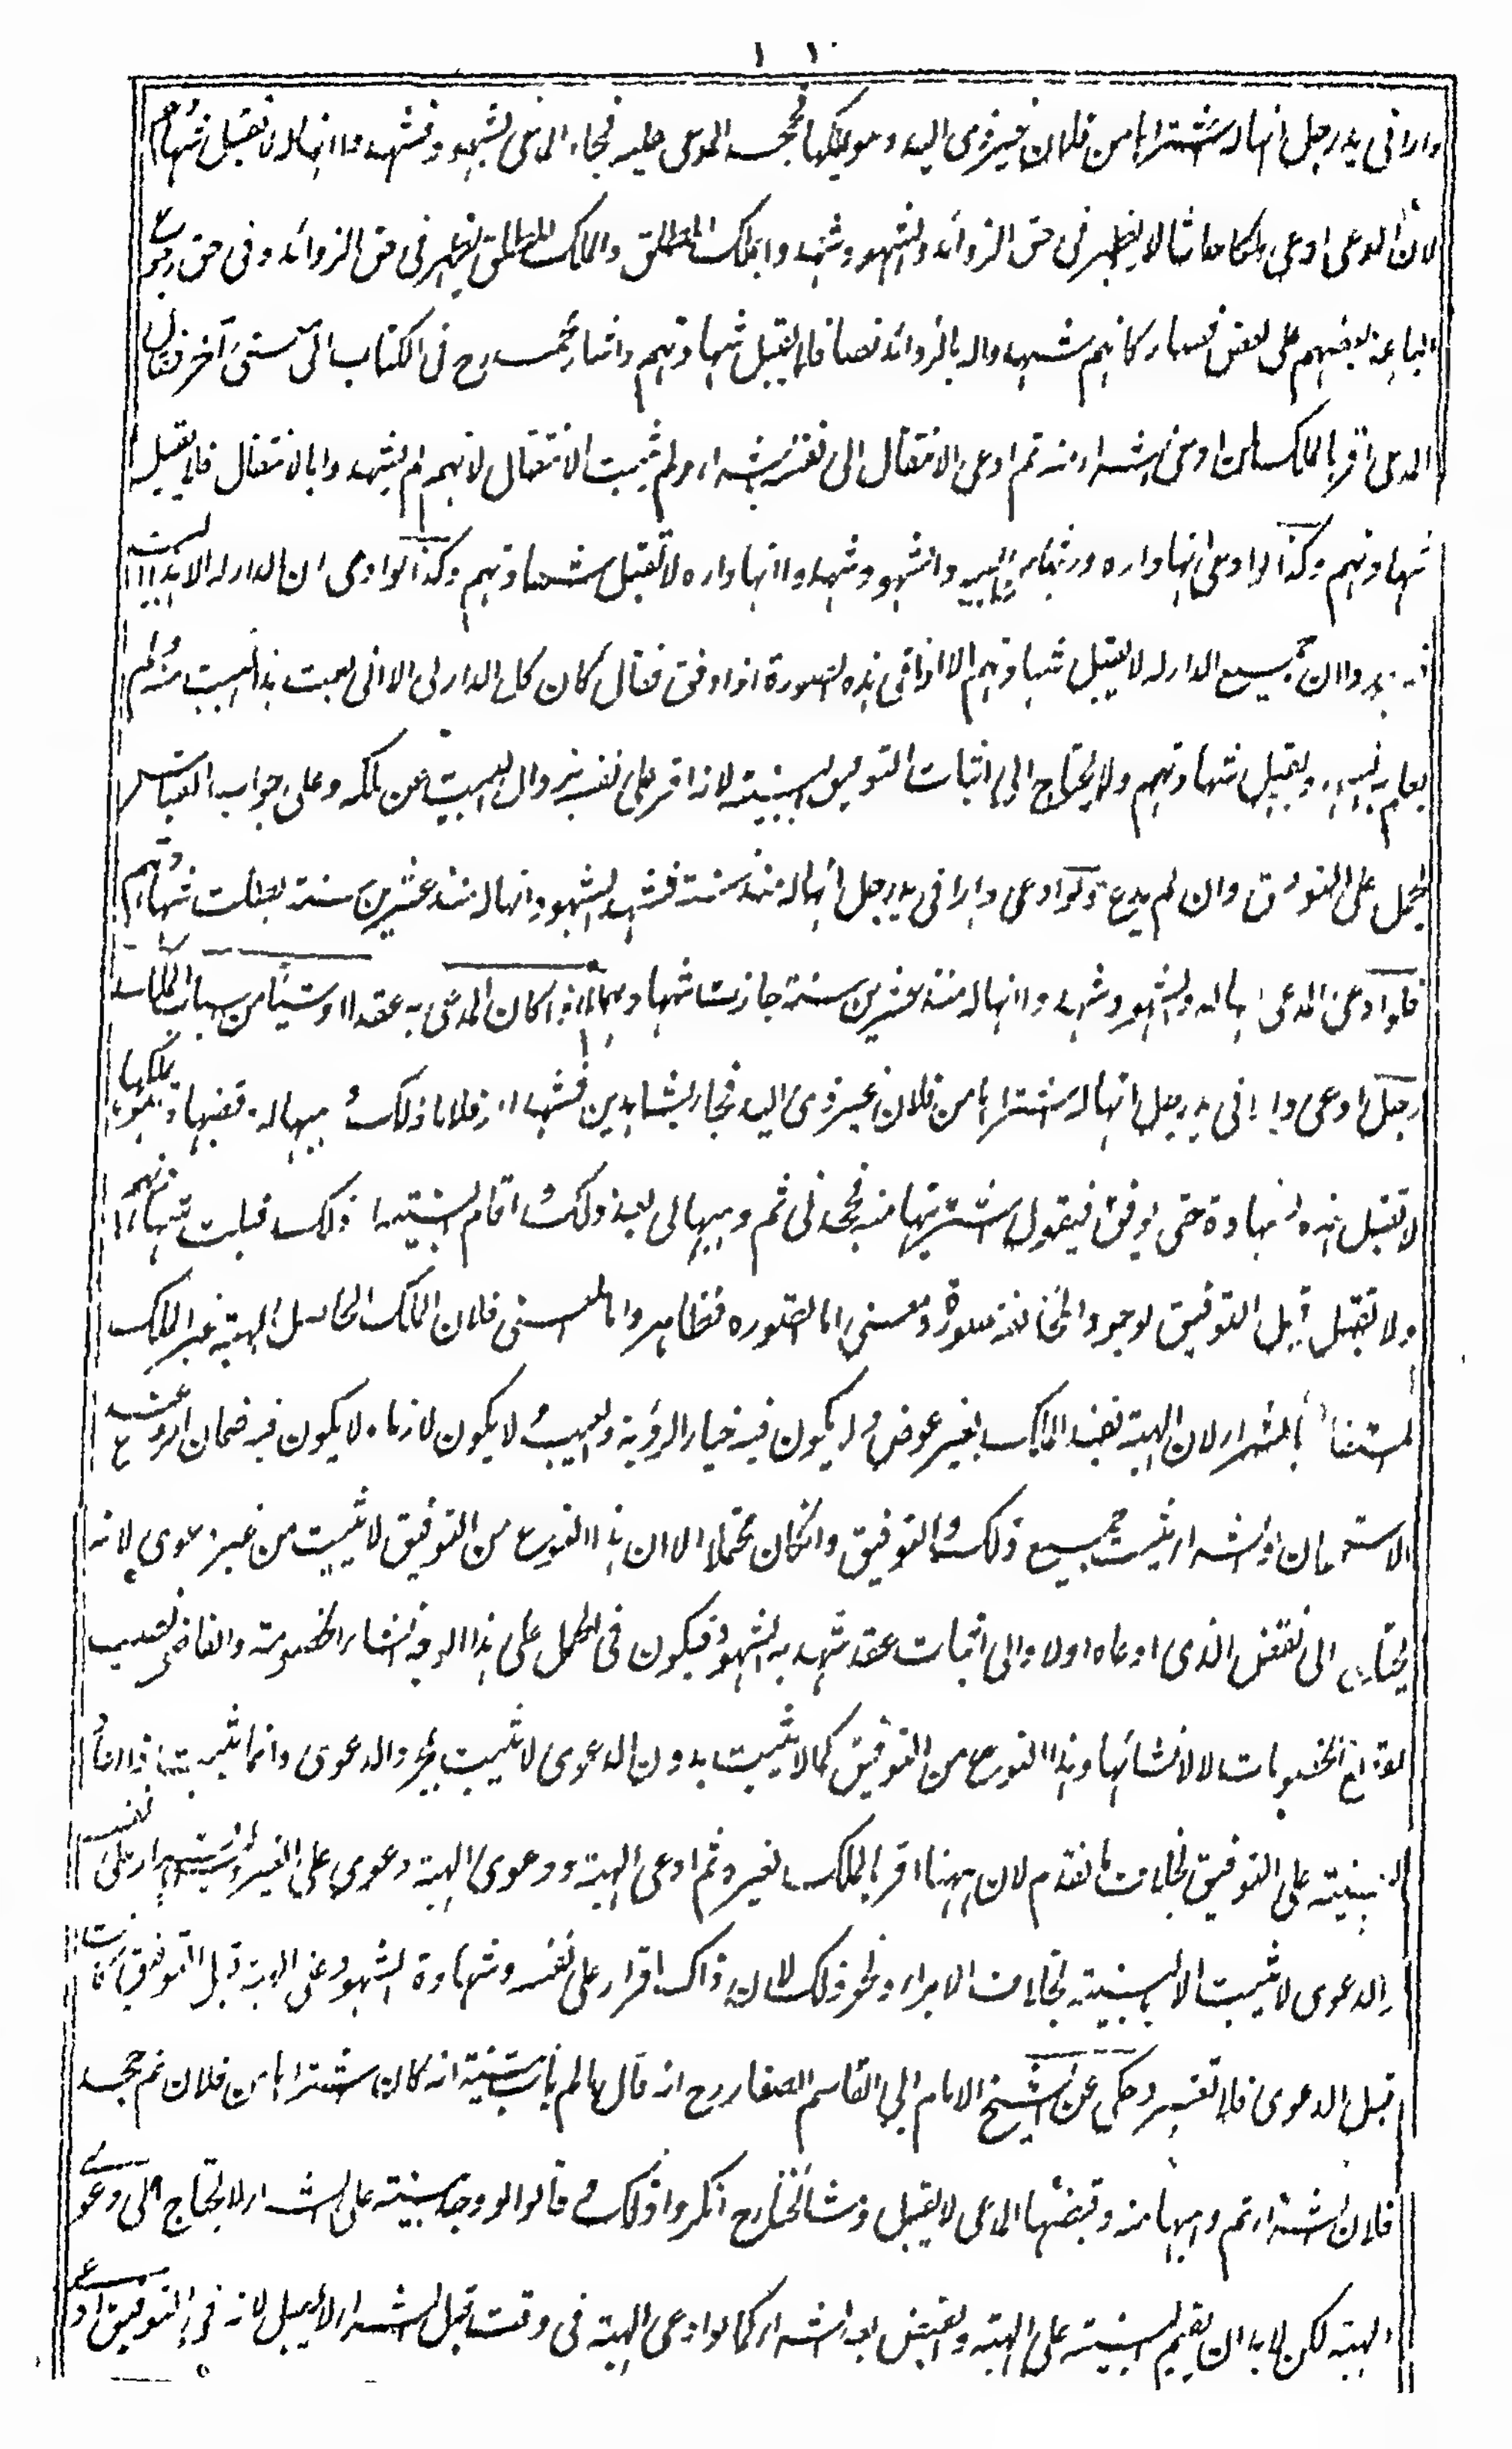 ١١
دارا فى يد رجل انها له اشتراها من فلان غير ذى اليد وهو يملكها فجحد المدعى عليه فجاء المدعى بشهود فشهدوا انها له لا تقبل شهادتهم
لان المدعى ادعى ملكا حادثا لا يظهر فى حق الزوائد والشهود شهدوا بالملك المطلق والملك المطلق يظهر فى حق الزوائد وفى حق رجوع
الباعة بعضهم على بعض فصار كانهم شهدوا له بالزوائد نصا فلا يقبل شهادتهم واشار محمد رح فى الكتاب الى معنى آخر فقال
المدعى اقر بالملك لمن ادعى الشراء منه ثم ادعى الانتقال الى نفسه بالشراء ولم يثبت الانتقال لانهم لم يشهدوا بالانتقال فلا يقبل
شهادتهم وكذا لو ادعى انها داره ورثها من ابيه والشهود شهدوا انها داره لا تقبل شهادتهم وكذا لو ادعى ان الدار له الا هذا البيت
فشهدوا ان جميع الدار له لا يقبل شهادتهم الا اذا فى هذه الصورة اذا وفق فقال كان كل الدار لى الا انى بعت هذا البيت منه ولم
يعلم به الشهود ويقبل شهادتهم ولا يحتاج الى اثبات التوفيق بالبينة لانه اقر على نفسه بزوال البيت عن ملكه وعلى جواب القياس
يحمل على التوفيق وان لم يدع ولو ادعى دارا فى يد رجل انها له منذ سنة فشهد الشهود انها له منذ عشرين سنة بطلت شهادتهم
فلو ادعى المدعى انها له والشهود شهدوا انها له منذ عشرين سنة جازت شهادتهما اذا كان المدعى به عقدا او شيئا من اسباب الملك
رجل ادعى دارا فى يد رجل انها له اشتراها من فلان غير ذى اليد فجاء بشاهدين فشهدا ان فلانا ذلك وهبها له وقبضها وهو يملكها
لا تقبل هذه الشهادة حتى يوفق فيقول اشتريتها منه فجحدنى ثم وهبها لى بعد ذلك واقام البينة على ذلك قبلت شهادتهم
ولا تقبل قبل التوفيق لوجود المخالفة صورة ومعنى اما الصورة فظاهر واما المعنى فلان الملك الحاصل بالهبة غير الملك
المستفاد بالشراء لان الهبة تفيد الملك بغير عوض ولا يكون فيه خيار الرؤية والعيب ولا يكون لازما ولا يكون فيه ضمان الرجوع عند
الاستحقاق والشراء يثبت جميع ذلك والتوفيق وان كان محتملا الا ان هذا النوع من التوفيق لا يثبت من غير دعوى لانه
يحتاج الى نقض الذى ادعاه اولا والى اثبات عقد شهد به الشهود فيكون فى الحمل على هذا الوجه انشاء الخصومة والقاضى نصب
لقطع الخصومات لا لانشائها وهذا النوع من التوفيق كما لا يثبت بدون الدعوى لا يثبت بمجرد الدعوى وانما يثبت اذا اقام
البينة على التوفيق بخلاف ما تقدم لان ههنا اقر بالملك لغيره ثم ادعى الهبة ودعوى الهبة دعوى على الغير وليس باقرار على نفسه
والدعوى لا يثبت الا بالبينة بخلاف الابراء ونحو ذلك لان ذاك اقرار على نفسه وشهادة الشهود على الهبة قبل التوفيق كانت
قبل الدعوى فلا تعتبر وحكى عن الشيخ الامام ابى القاسم الصفار رح انه قال ما لم يأت ببينة انه كان اشتراها من فلان ثم جحد
فلان الشراء ثم وهبها منه وقبضها المدعى لا يقبل ومشائخنا رح انكروا ذلك وقالوا لو وجد بينة على الشراء لا يحتاج الى دعوى
الهبة لكن لا بد ان يقيم البينة على الهبة والقبض بعد الشراء كما لو ادعى الهبة فى وقت قبل الشراء لا يقبل لانه فى التوفيق ادعى